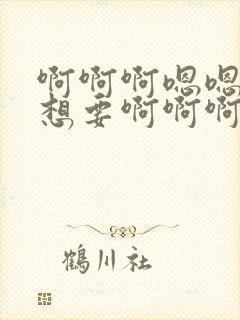 啊啊啊嗯嗯
想要啊啊啊
鶴川社